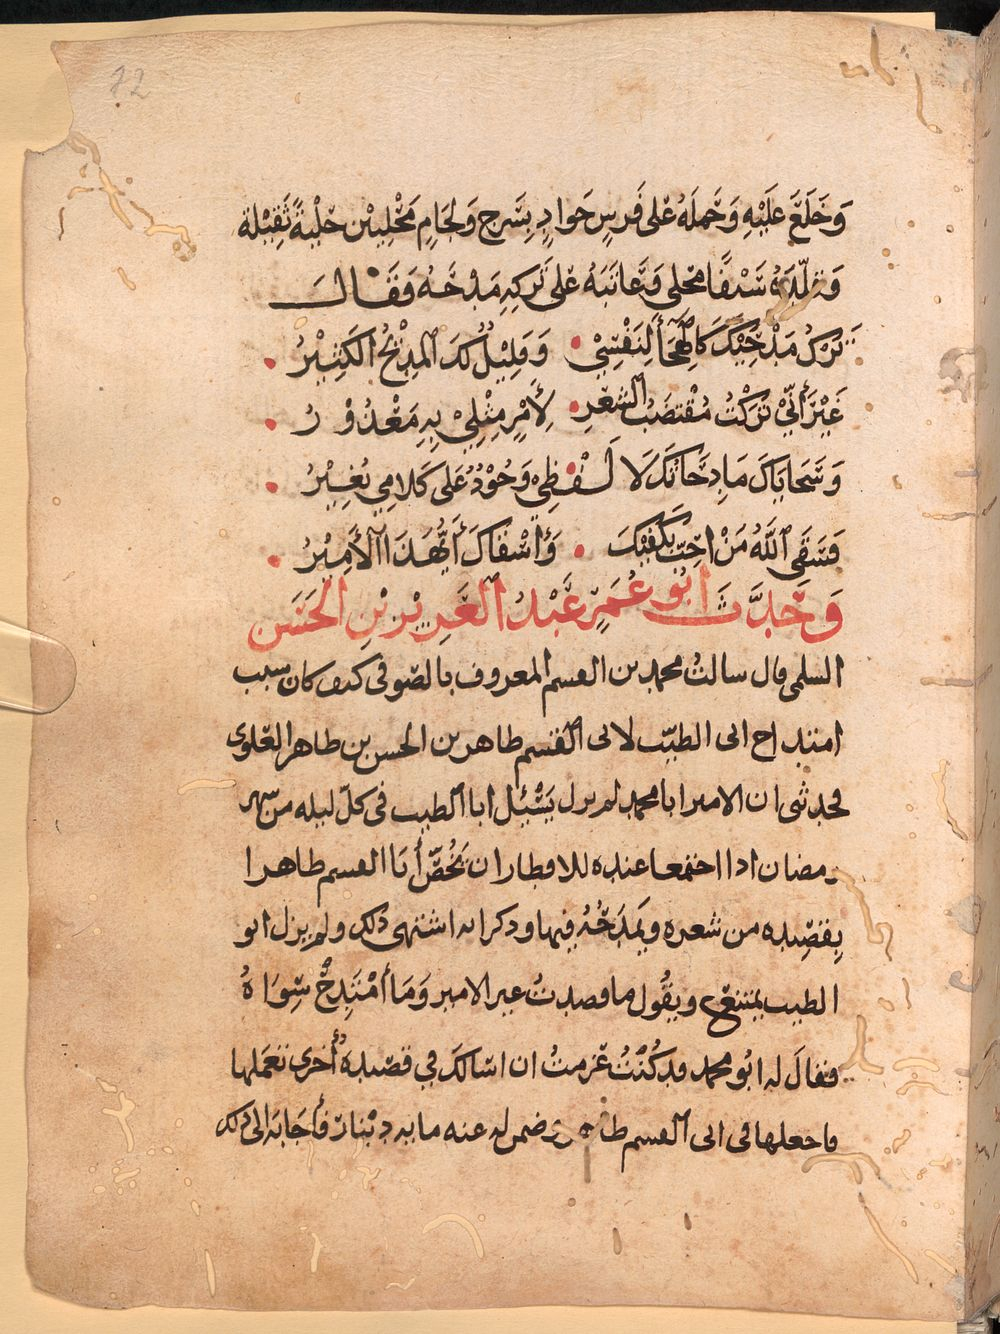 72
وَخَلَعَ عَلَيْهِ وَحَملَهُ على فَرسٍ جَوادٍ بِسَرجٍ وَلجَامٍ مَحْلِييْن حلْيةً ثَقِيْلة
وَقلّدَهُ سَيْفًا محلى وَعَاتَبَهُ على تَركِهِ مَدْحَهُ وَقَالَ
تَرْكُ مَدْحِيْكَ كَالهِجَآ لِنَفْسِيْ • وَقلِيْلٌ لكَ المدِيْحُ الكَثِيْرُ •
غَيْرَ أَنّيْ تَرَكْتُ مُقْتضَبَ الشعْرِ • لِأَمْرٍ مِثْلِيْ بِهِ مَعْذُوْرُ •
وَسَجَايَاكَ مَادِحَاتُكَ لَا لَفْظِيْ • وَجُوْدٌ عَلى كَلامِي يُغِيْرُ •
فَسَقَى اللَّهُ مَنْ احِبّ بكَفّيْكَ • وَأَسْقاكَ أَيُّهَذَا الأَمِيْرُ •
وَحَدَّثَ ابُو عُمَر عَبْدُ العَزِيْز بْنِ الحَسَن
السلمى قال سالتُ محمد بن القسم المعروف بالصّوفى كيف كان سبب
امتداح ابى الطيّب لابى القسم طاهر بن الحسن بن طاهر العَلوى
فحدثنى ان الامير ابا محمد لم يزل يَسْئل ابا الطيب فى كلّ ليله من شهر
رمضان اذا اجتمعا عنده للافطار ان يَخُصّ أبَا القسم طاهرا
بِقصِيده من شعره ويَمْدَحُهُ فيها وذكر انه اشتهى ذلك ولم يزل ابو
الطيب يمتنعُ ويقُول ما قصدتُ غير الامير وَمَا أمْتَدِحُ سِوَاهُ
فقالَ له ابُو محمد قد كُنْتُ عَزمتُ ان اسْالكَ فى قصِيدةٍ أُخرى تعْمَلها
فاجعلها فى ابى القسم طاهر وضمن له عنه مايه دينار فأَجَابه الى ذلك